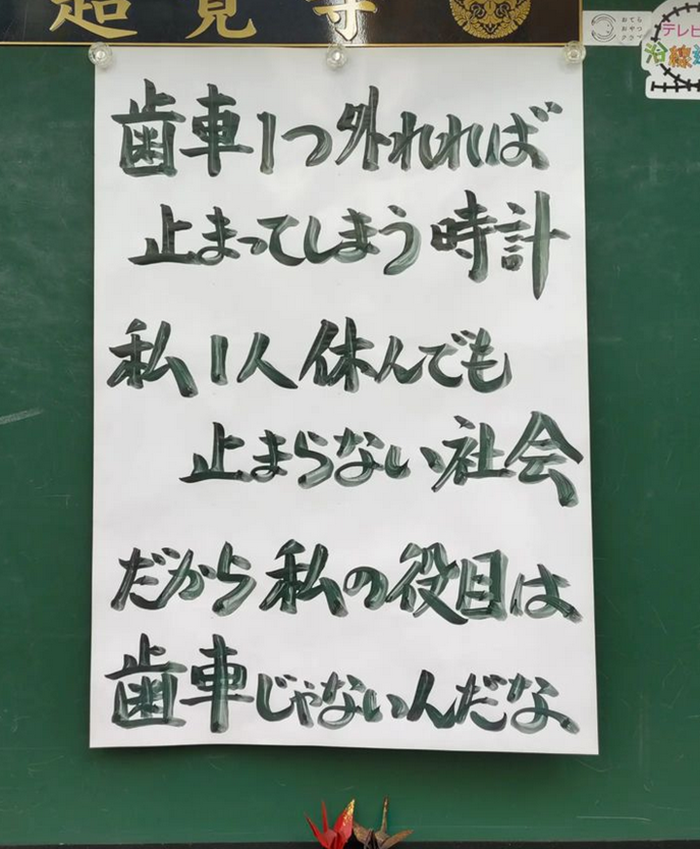 超覚寺
おてら
おやつ
クラブ
テレビ
沿線
歯車1つ外れれば
止まってしまう時計
私1人休んでも
止まらない社会
だから私の役目は
歯車じゃないんだな